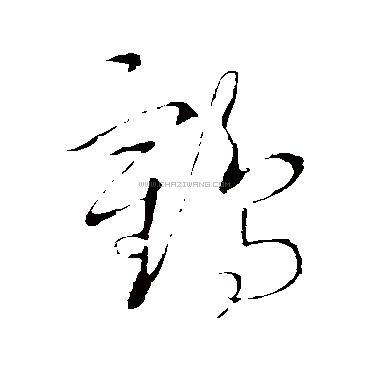 鶴
WWW.CHAZIWANG.COM